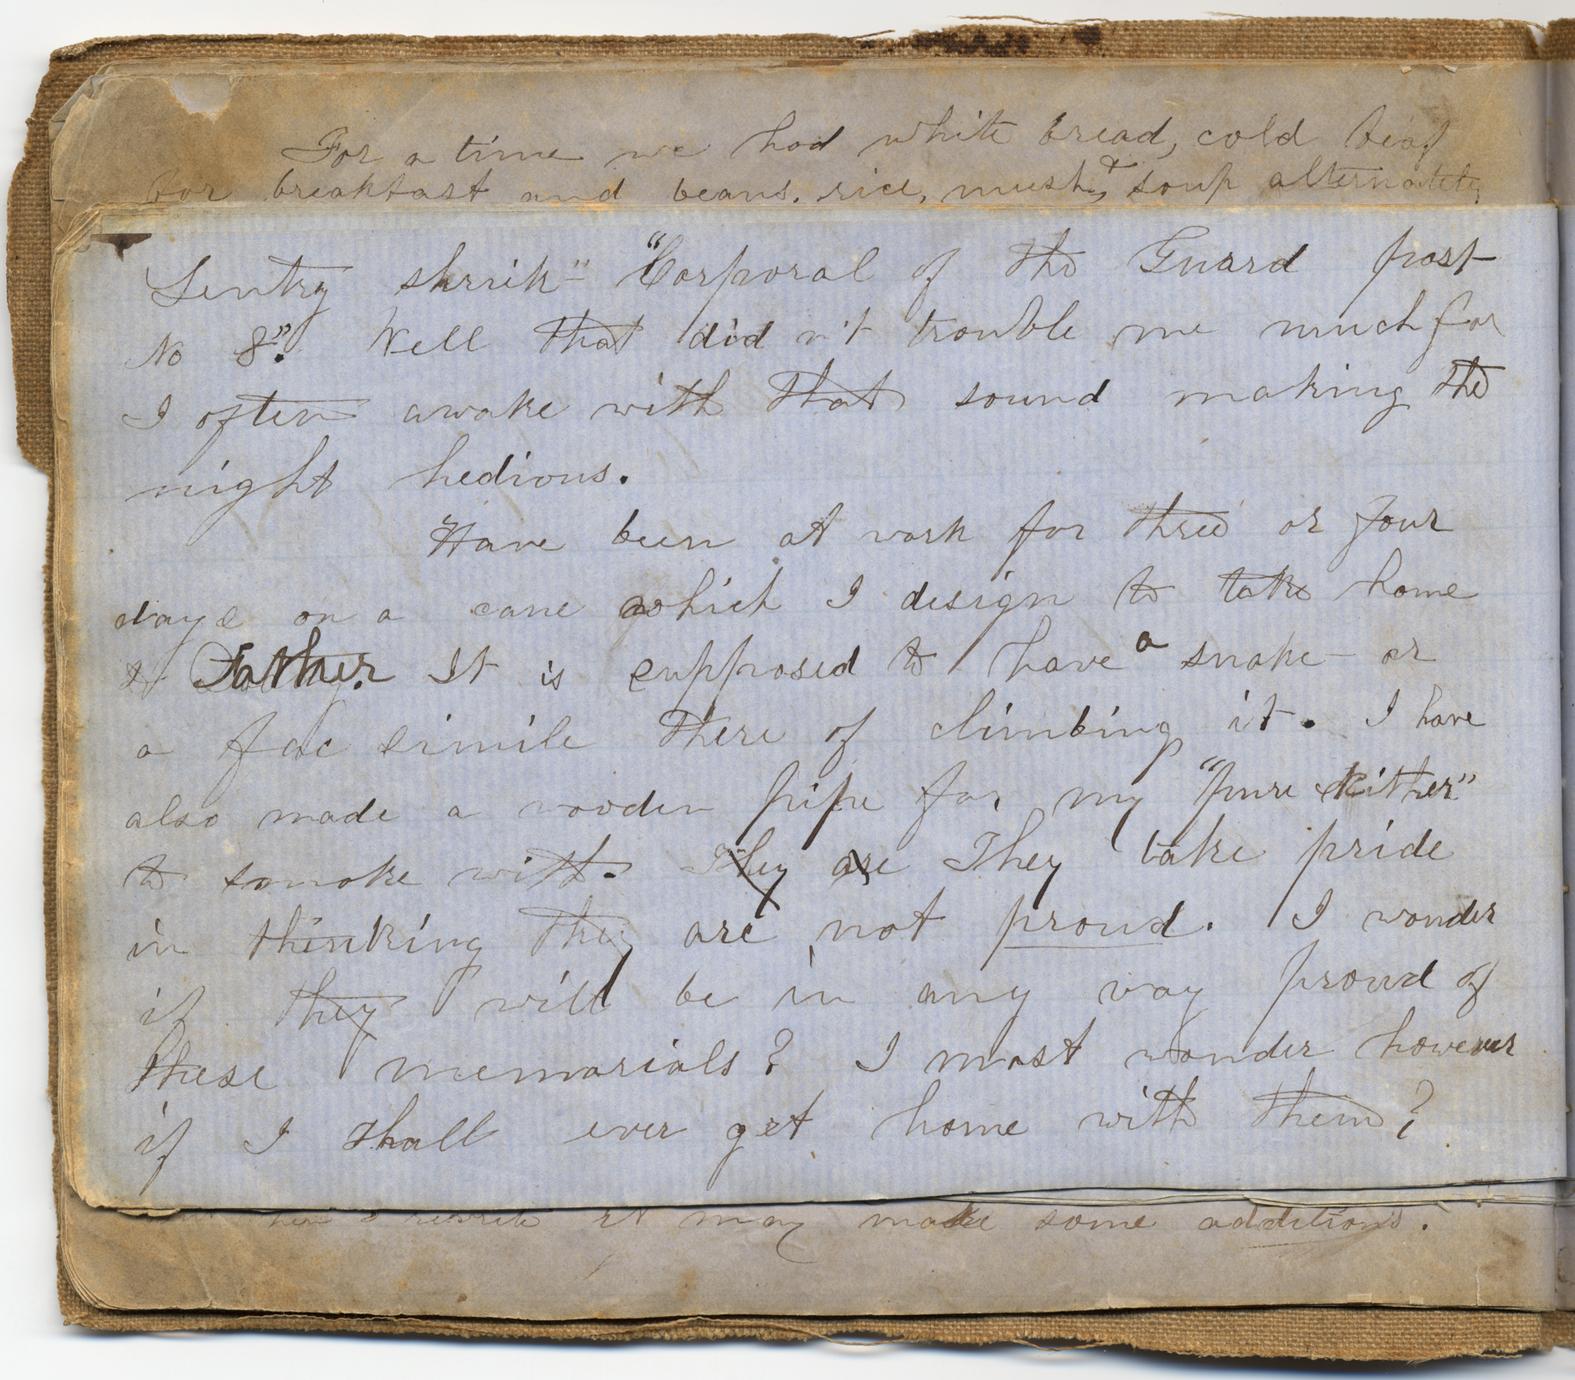 For a time we had white bread, cold beef
for breakfast and beans. rice, mush, & soup alternately
Sentry shriik-" "Corporal of the Guard post
No 8". Well that did n't trouble me much for
I often awake with that sound making the
night hedious.
Have been at work for three or four
days on a cane which I design to take home
to Father It is supposed to have a snake or
a fac simile there of climbing it. I have
also made a wooden pipe for my "pure
to somoke with. They are They take pride
in thinking they are not proud. I wonder
if they will be in any way proud of
these memorials? I most wonder however
if I shall ever get home with them?
rewrite it may make some additions.